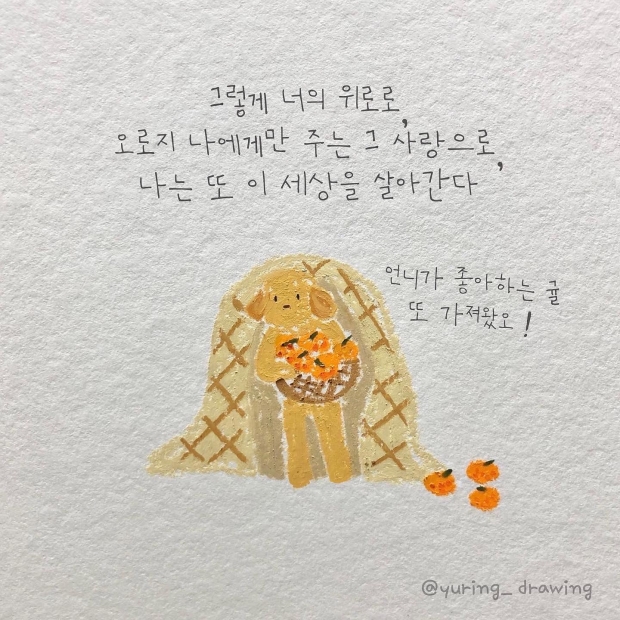 그렇게 너의 위로로,
오로지 나에게만 주는 그 사랑으로,
나는 또 이 세상을 살아간다
언니가 좋아하는 귤
또 가져왔오!
@yuring_drawing